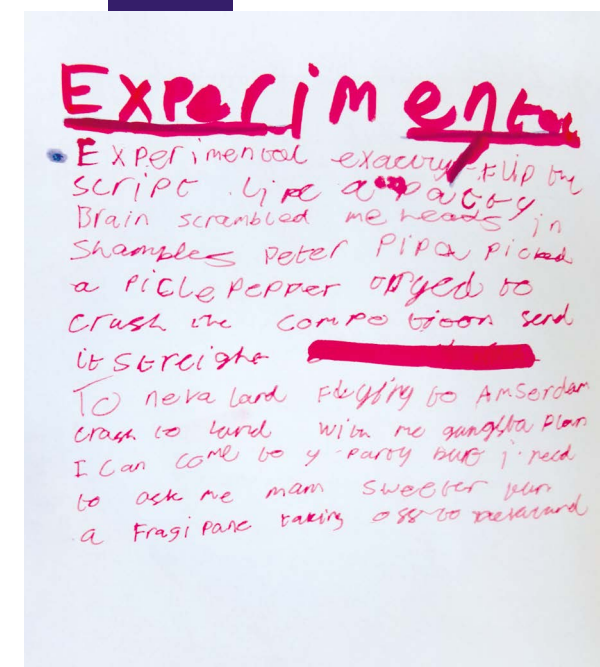 Experimental
Experimental exactly flip the
script like a patty
Brain scrambled me heads in
Shamples Peter Pipa Picked
a Picle Pepper to
crash the compotioon send
it streight
To neva land Flyging to Amserdam
crash to land with me gangsta Plan
I can come to y party but i need
to ask me mam sweeter
a Fragi pane taking off to